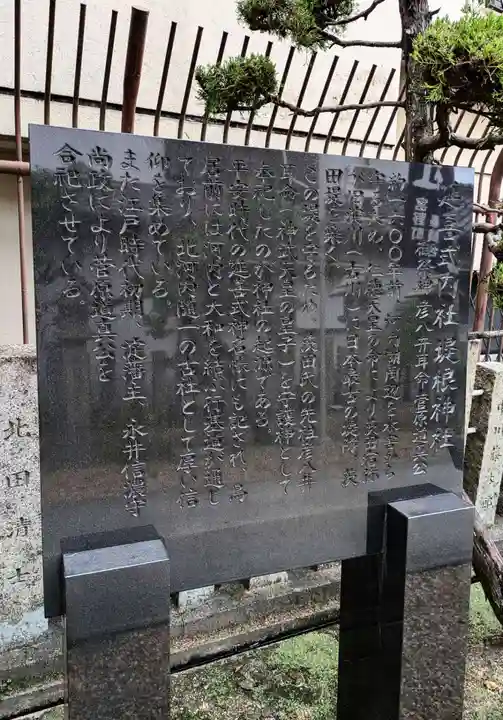 延喜式内社 堤根神社
御祭神 彦八井耳命 菅原道真公
約一六〇〇年前
古川
に日本最古の堤防、茨
田堤を築く。
この堤を守るため、茨田氏の先祖彦八井
耳命(神武天皇の皇子)を守護神として
奉祀したのが神社の起源である。
平安時代の延喜式神名帳にも記され、当
居前には河内と大和を結ぶ行基道が通じ
ており、北河内随一の古社として厚い信
仰を集めている。
また江戸時代初期、淀藩主、永井信濃守
尚政により菅原道真公を
合祀させている。
北田清士